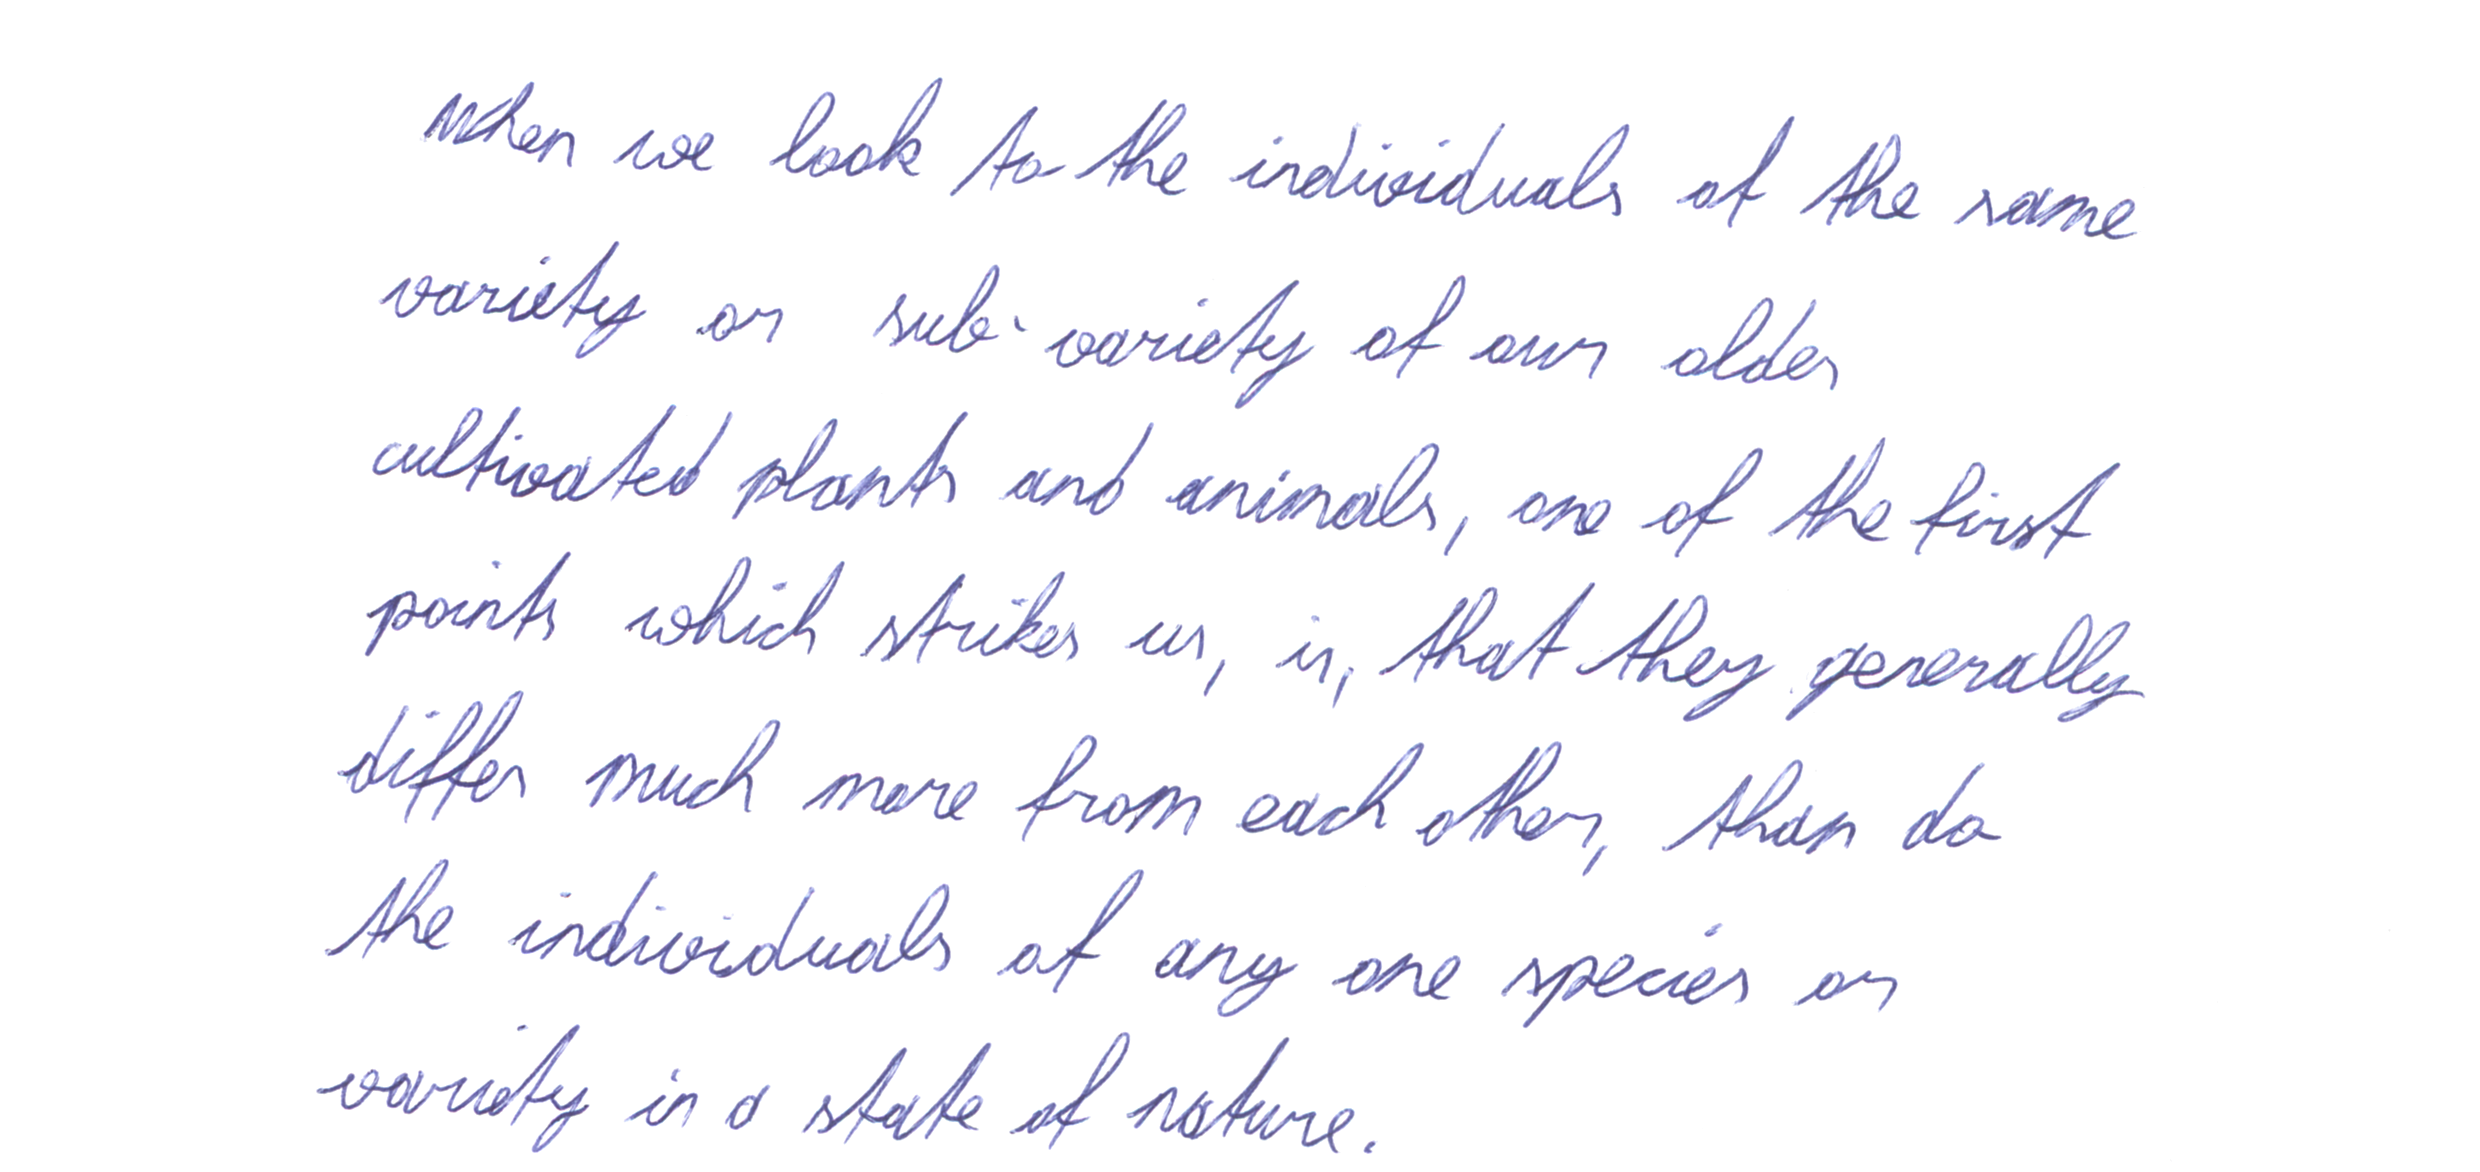 When we look to the individuals of the same
variety or sub-variety of our older
cultivated plants and animals, one of the first
points which strikes us, is, that they generally
differ much more from each other, than do
the individuals of any one species or
variety in a state of nature.